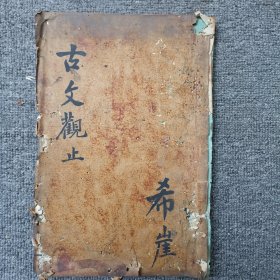 古文觀止
希崖